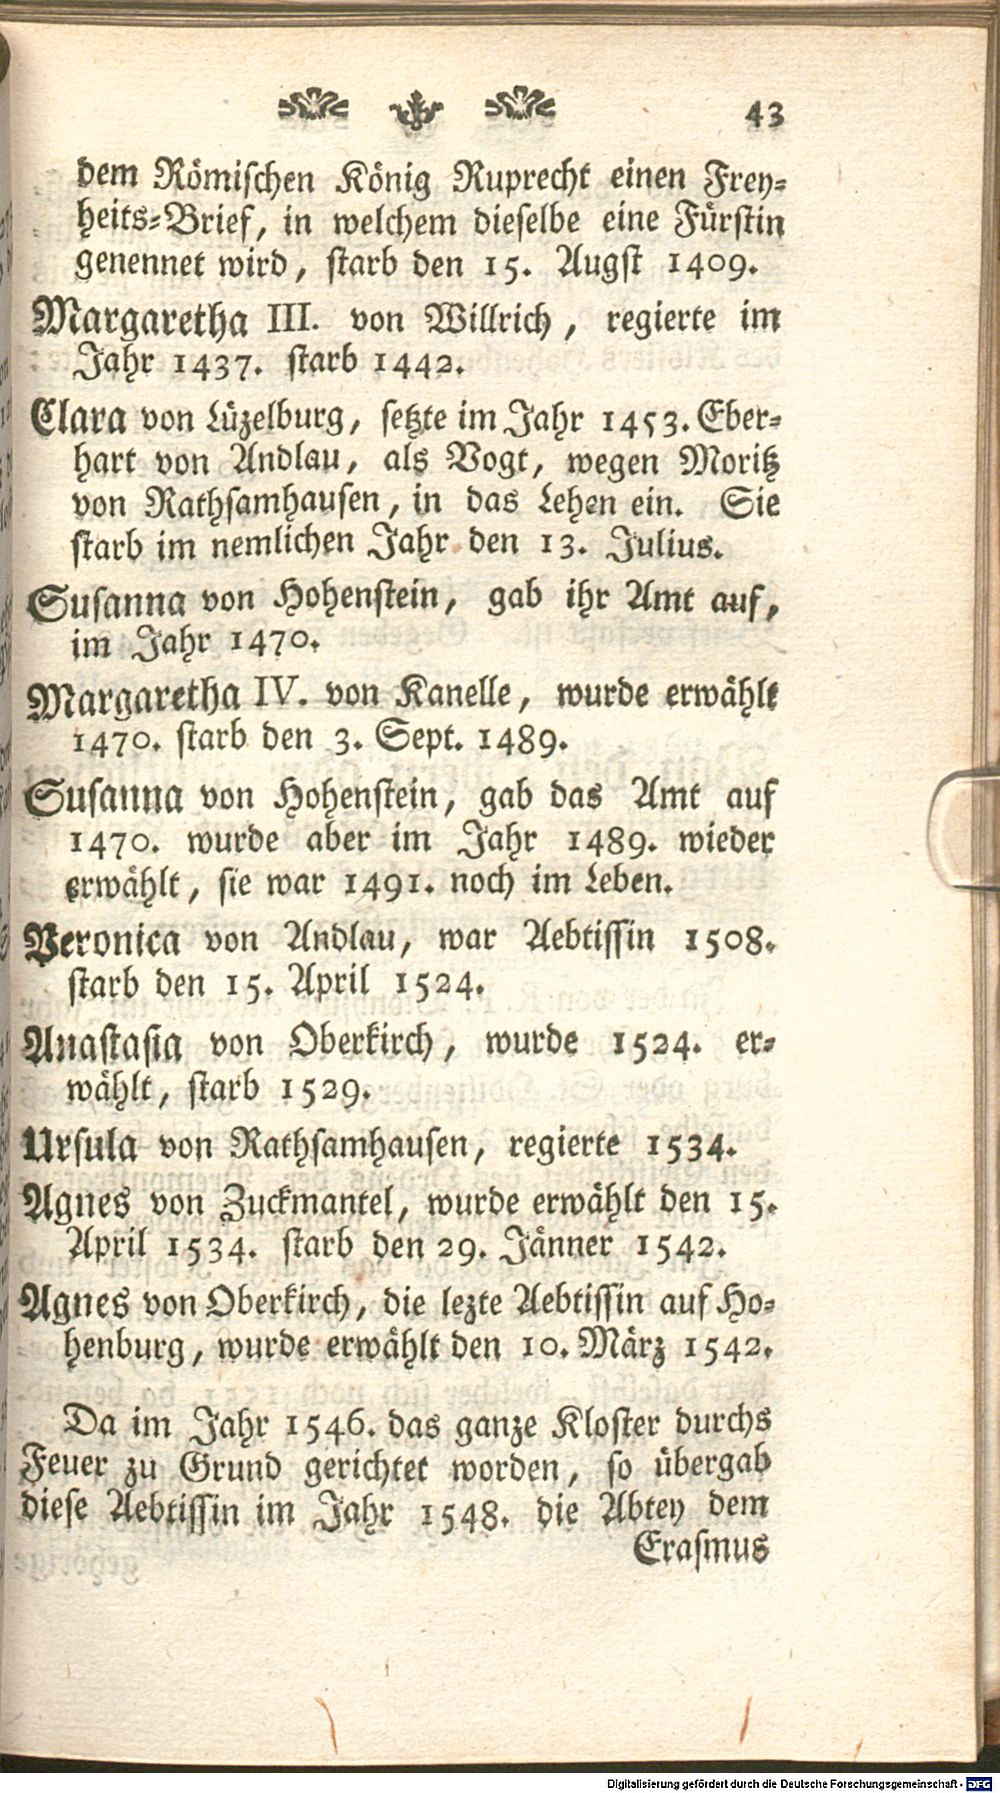 43
dem Römischen König Ruprecht einen Frey-
heits-Brief, in welchem dieselbe eine Fürstin
genennet wird, starb den 15. Augst 1409.
Margaretha III. von Willrich, regierte im
Jahr 1437. starb 1442.
Clara von Lüzelburg, setzte im Jahr 1453. Eber-
hart von Andlau, als Vogt, wegen Moritz
von Rathsamhausen, in das Lehen ein. Sie
starb im nemlichen Jahr den 13. Julius.
Susanna von Hohenstein, gab ihr Amt auf,
im Jahr 1470.
Margaretha IV. von Kanelle, wurde erwählt
1470. starb den 3. Sept. 1489.
Susanna von Hohenstein, gab das Amt auf
1470. wurde aber im Jahr 1489. wieder
erwählt, sie war 1491. noch im Leben.
Veronica von Andlau, war Aebtissin 1508.
starb den 15. April 1524.
Anastasia von Oberkirch, wurde 1524. er-
wählt, starb 1529.
Ursula von Rathsamhausen, regierte 1534.
Agnes von Zuckmantel, wurde erwählt den 15.
April 1534. starb den 29. Jänner 1542.
Agnes von Oberkirch, die lezte Aebtissin auf Ho-
henburg, wurde erwählt den 10. März 1542.
Da im Jahr 1546. das ganze Kloster durchs
Feuer zu Grund gerichtet worden, so übergab
diese Aebtissin im Jahr 1548. die Abtey dem
Erasmus
Digitalisierung gefördert durch die Deutsche Forschungsgemeinschaft - DFG